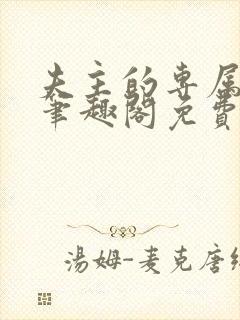 夫主的专属
笔趣阁免费
湯姆-麦克唐纳